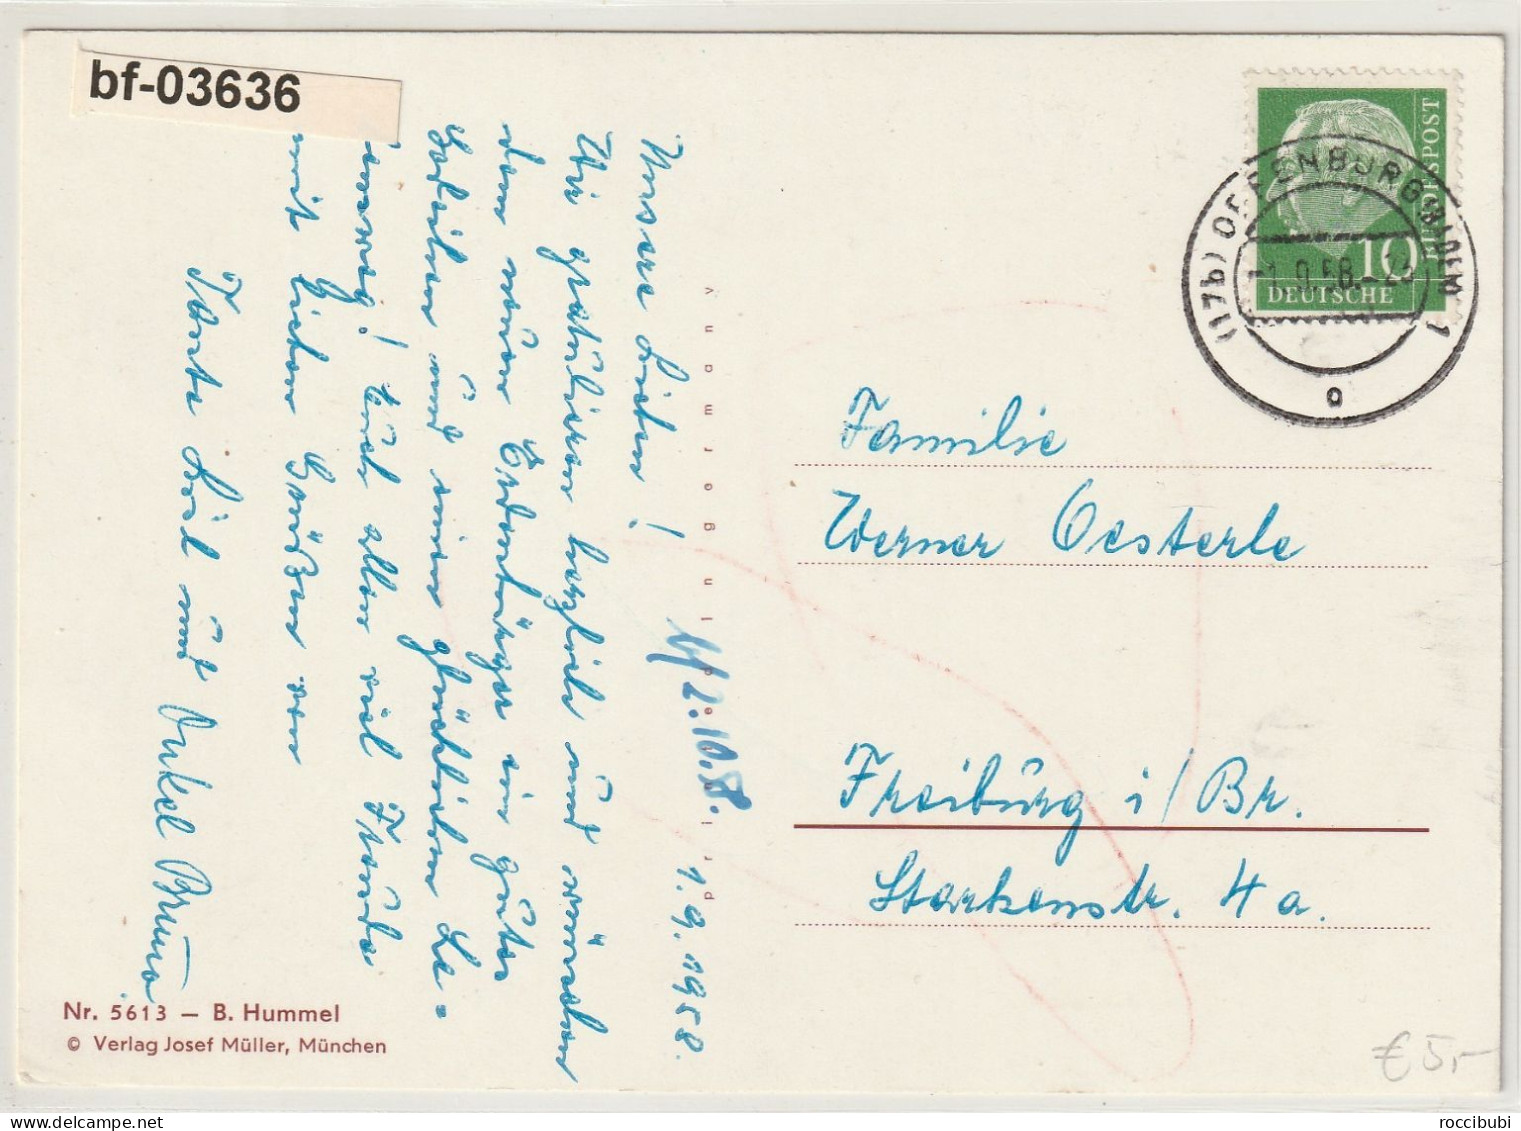 bf-03636
1.9.1958.
Unsere Lieben!
Wir gratulieren herzlich und wünschen
dem neuen Erdenbürger ein gutes
Gedeihen und einen glücklichen Le-
bensweg! Euch allen viel Freude
mit lieben Grüßen von
Tante Liesl und Onkel Bruno.
Nr. 5613 – B. Hummel
© Verlag Josef Müller, München
2.10.58.
DEUTSCHE BUNDESPOST
10
(17b) OFFENBURG (BADEN) 1
-1.9.58.-23
a
Familie
Werner Oesterle
Freiburg i/Br.
Starkenstr. 4a.
€ 5,-
roccibubi